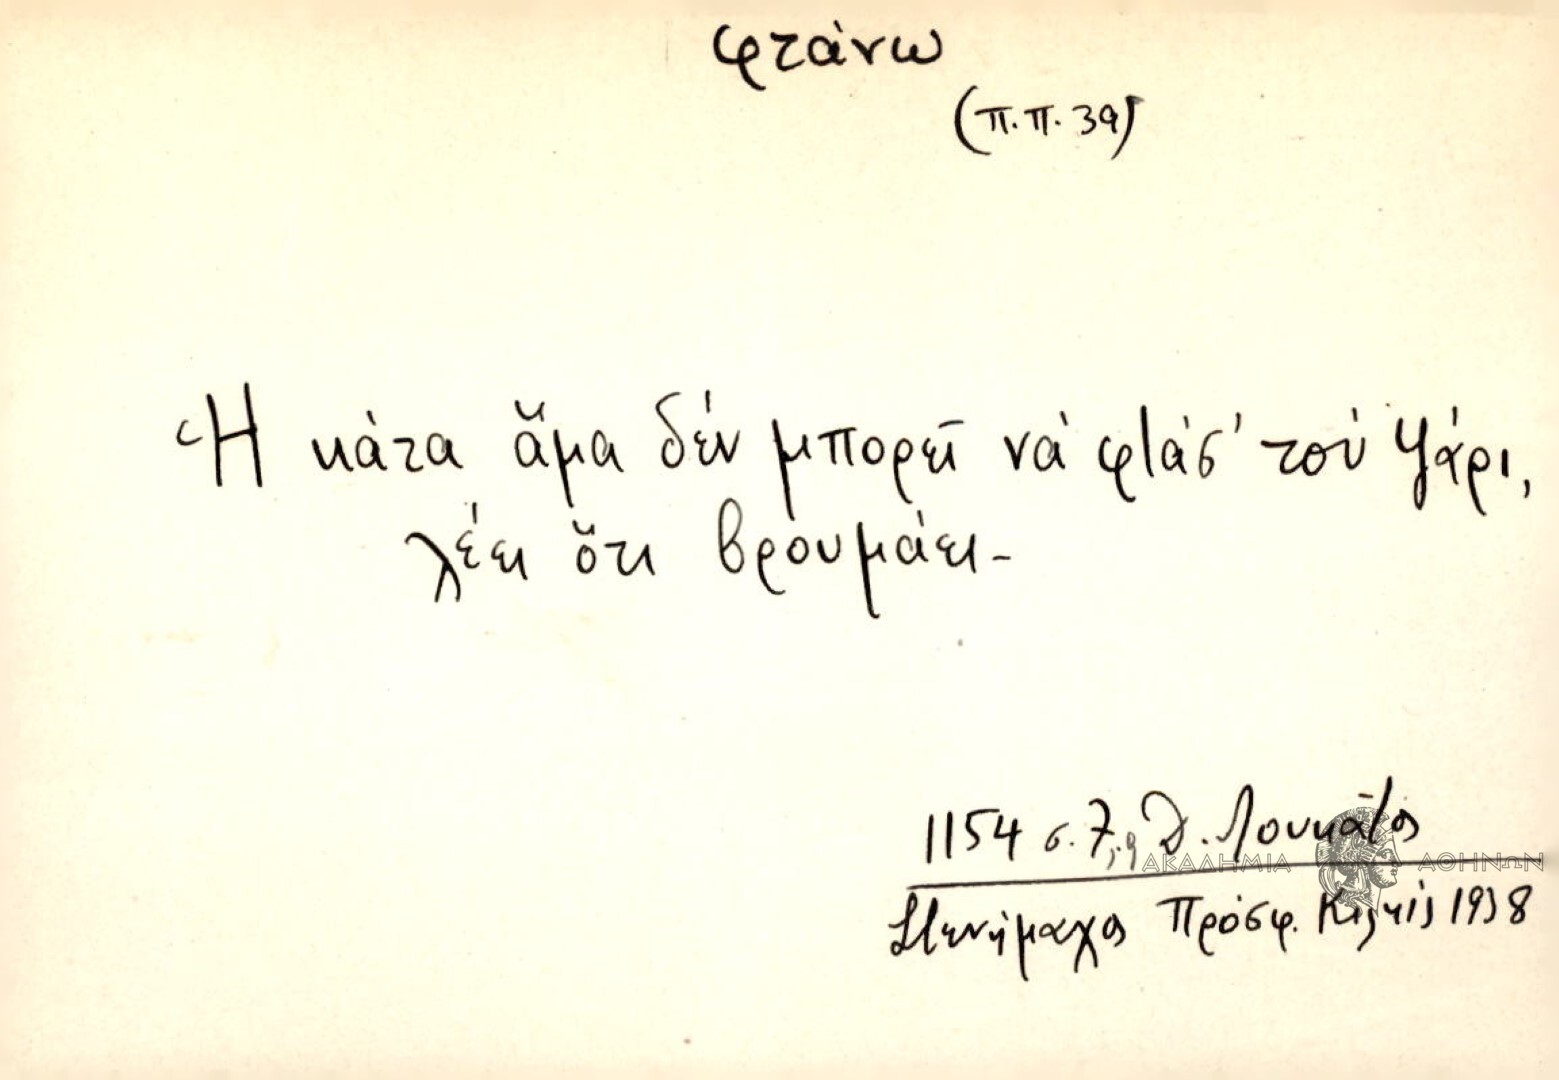 φτάνω
(π.π. 39)
Ἡ κάτα ἅμα δέν μπορεῖ νά φτάσ' τού ψάρι,
λέει ὅτι βρουμάει-
1154 σ. 7, Δ. Λουκᾶτος
ΑΚΑΔΗΜΙΑ ΑΘΗΝΩΝ
Στενήμαχος Πρόσφ. Κιλκίς 1938